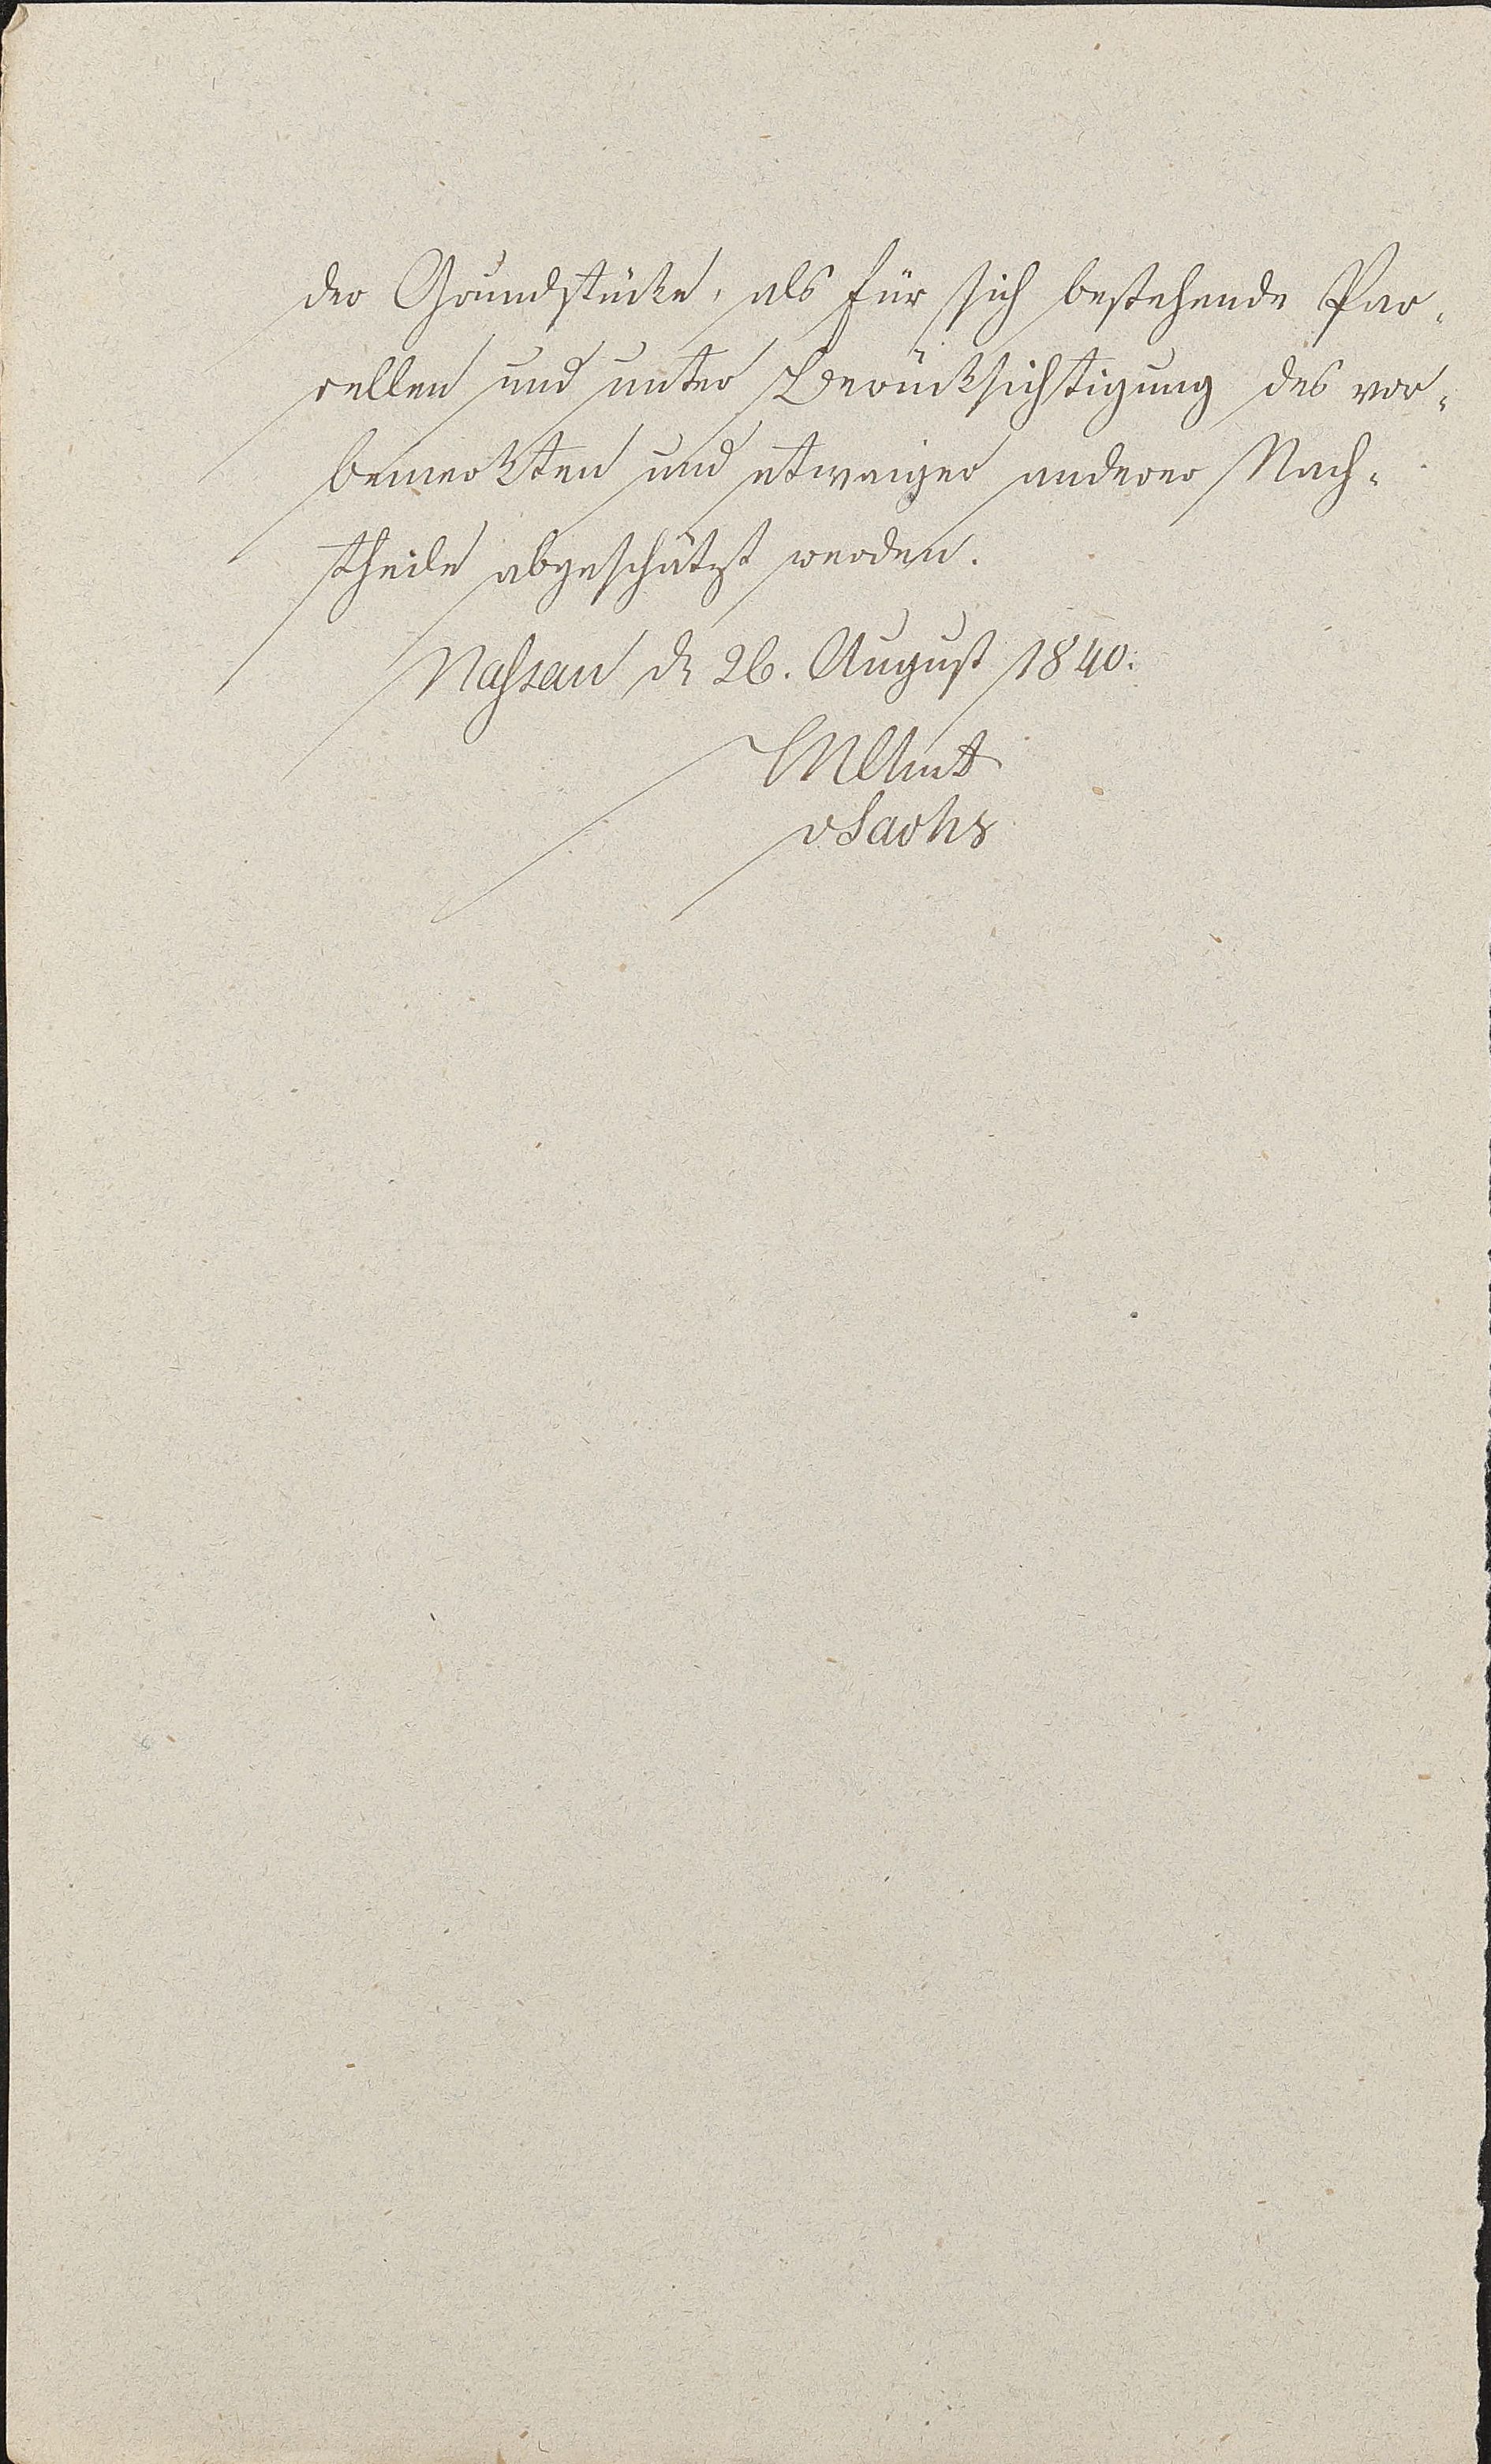 der Grundstücke, als für sich bestehende Par-
cellen und unter Berücksichtigung des vor-
bemerkten und etwaiger anderer Nach-
theile abgeschätzt werden.
Nassau d 26. August 1840.
HNAmt
vSachs